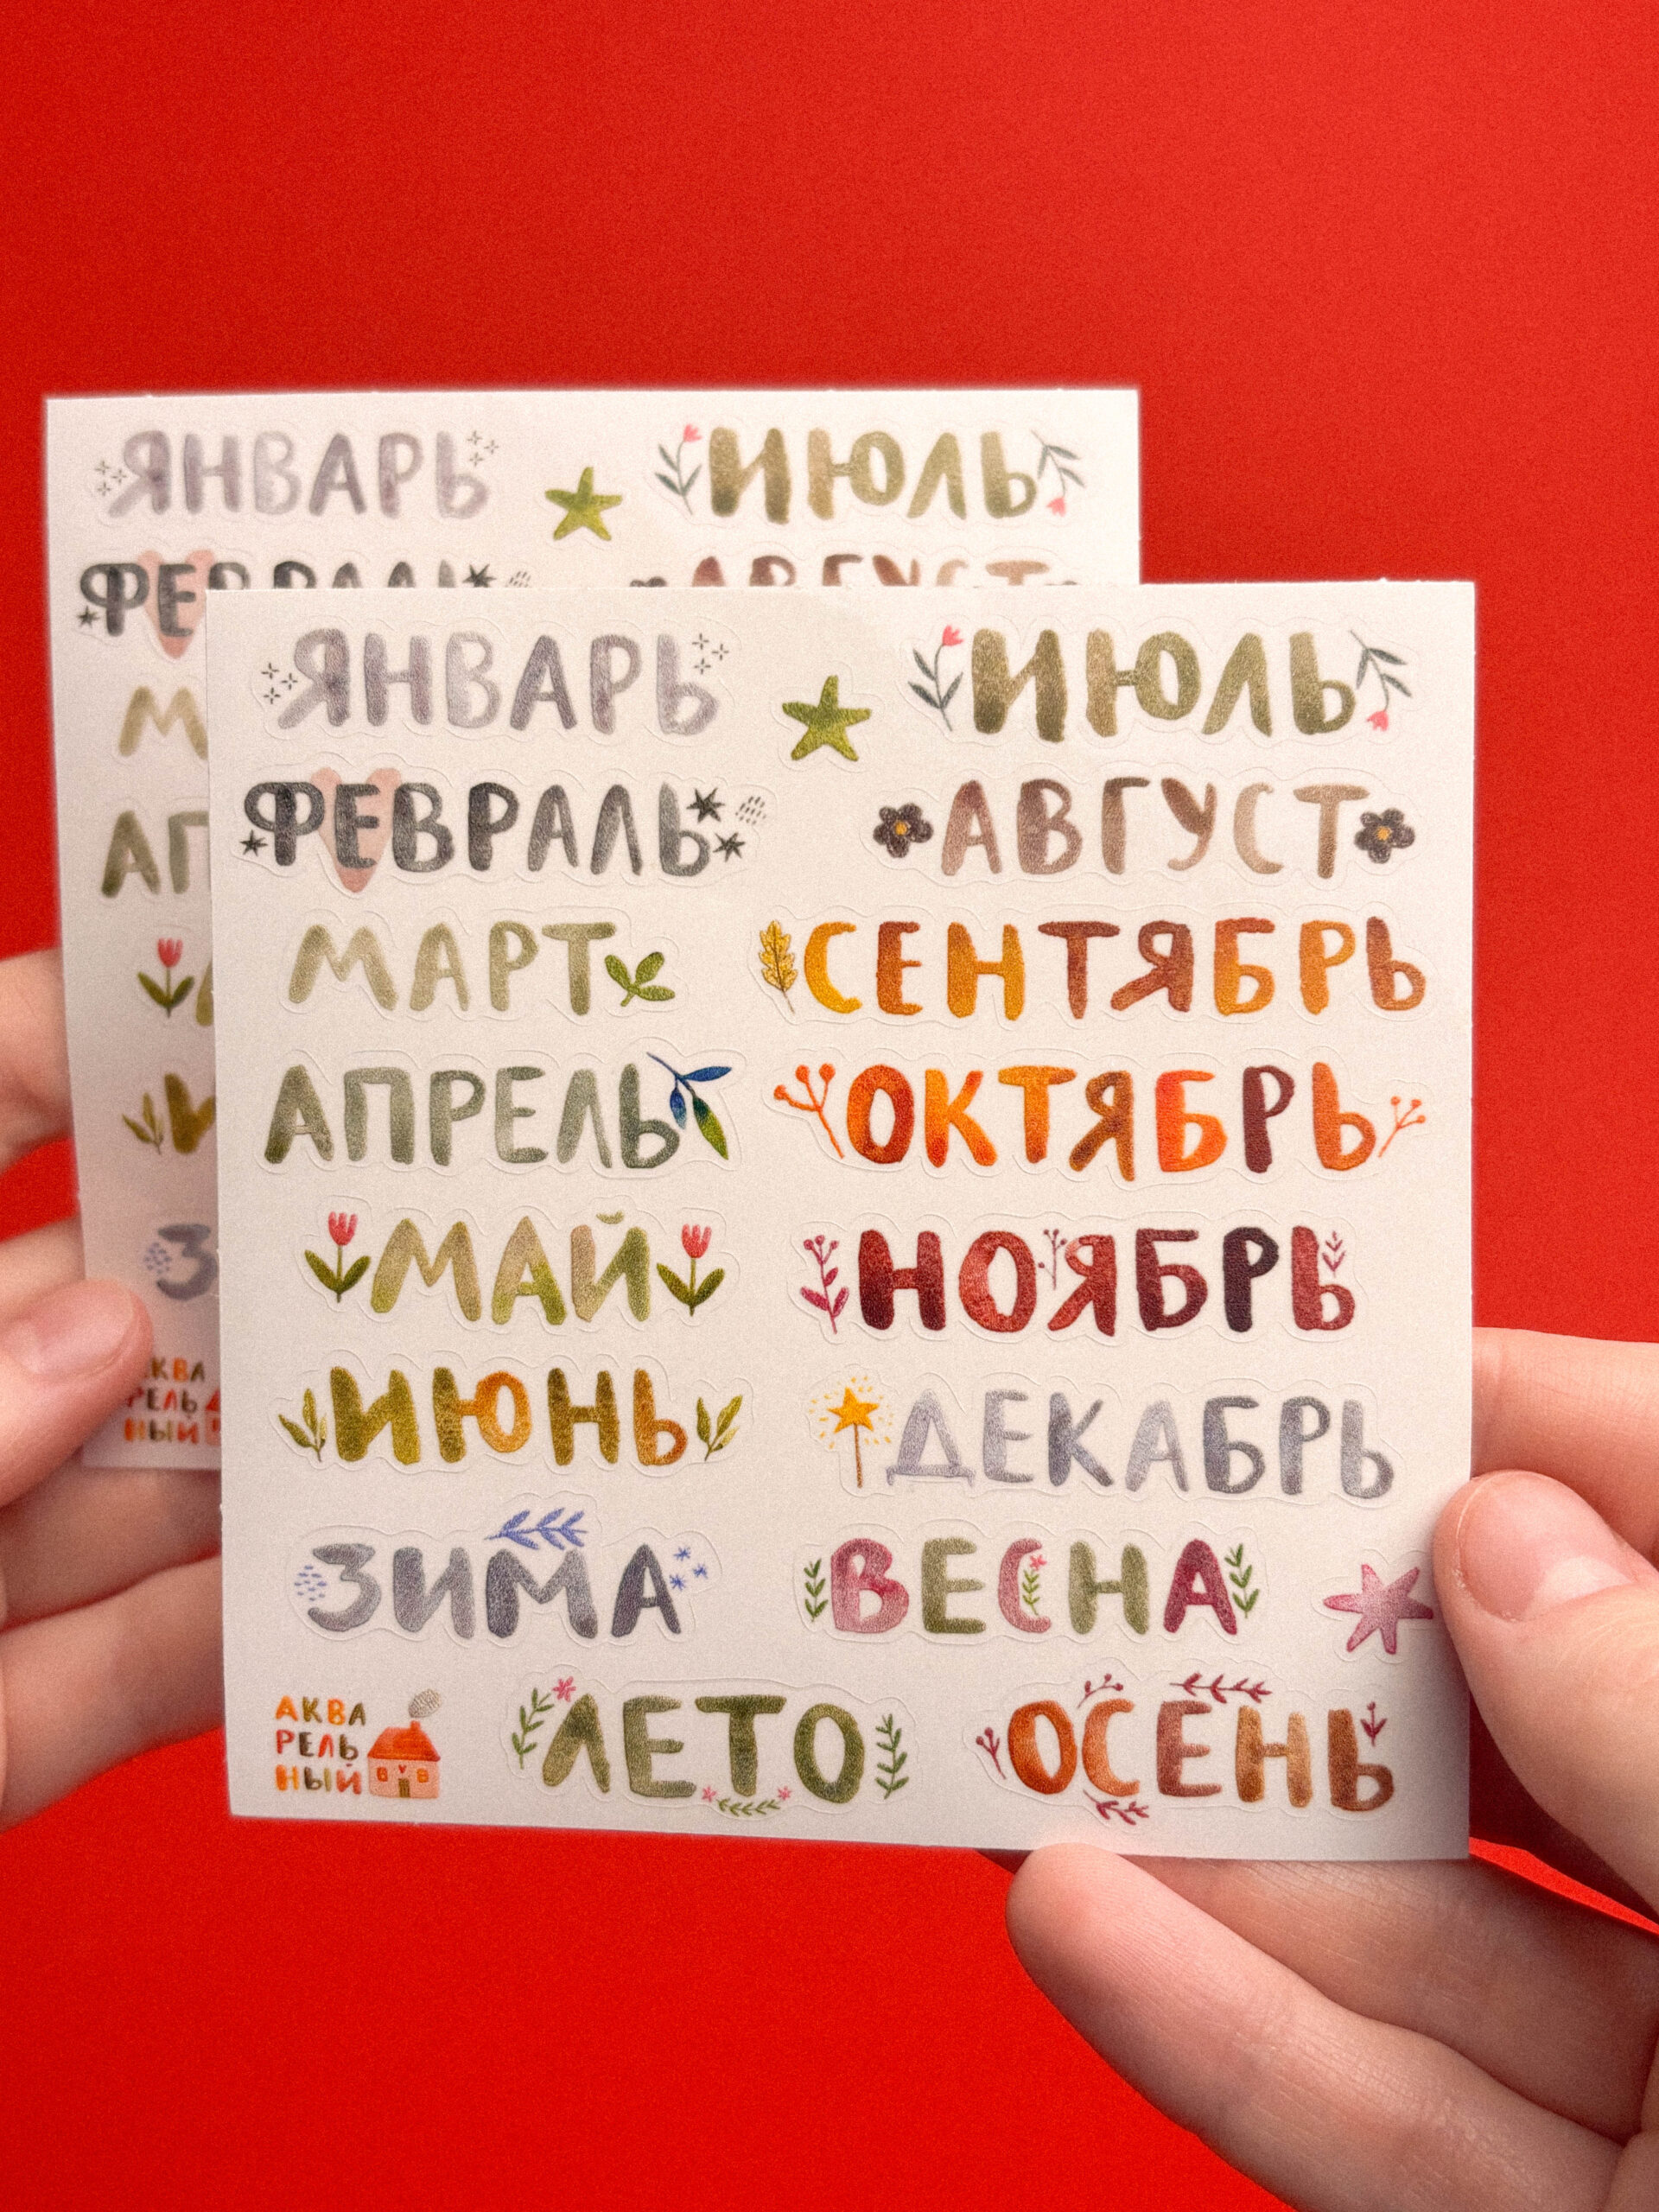 ЯНВАРЬ ИЮЛЬ
ФЕВРАЛЬ АВГУСТ
ЯНВАРЬ ИЮЛЬ
ФЕВРАЛЬ АВГУСТ
МАРТ СЕНТЯБРЬ
АПРЕЛЬ ОКТЯБРЬ
МАЙ НОЯБРЬ
ИЮНЬ ДЕКАБРЬ
ЗИМА ВЕСНА
АКВА
РЕЛЬ
НЫЙ
BYB
ЛЕТО ОСЕНЬ
АКВА
РЕЛЬ
НЫЙ